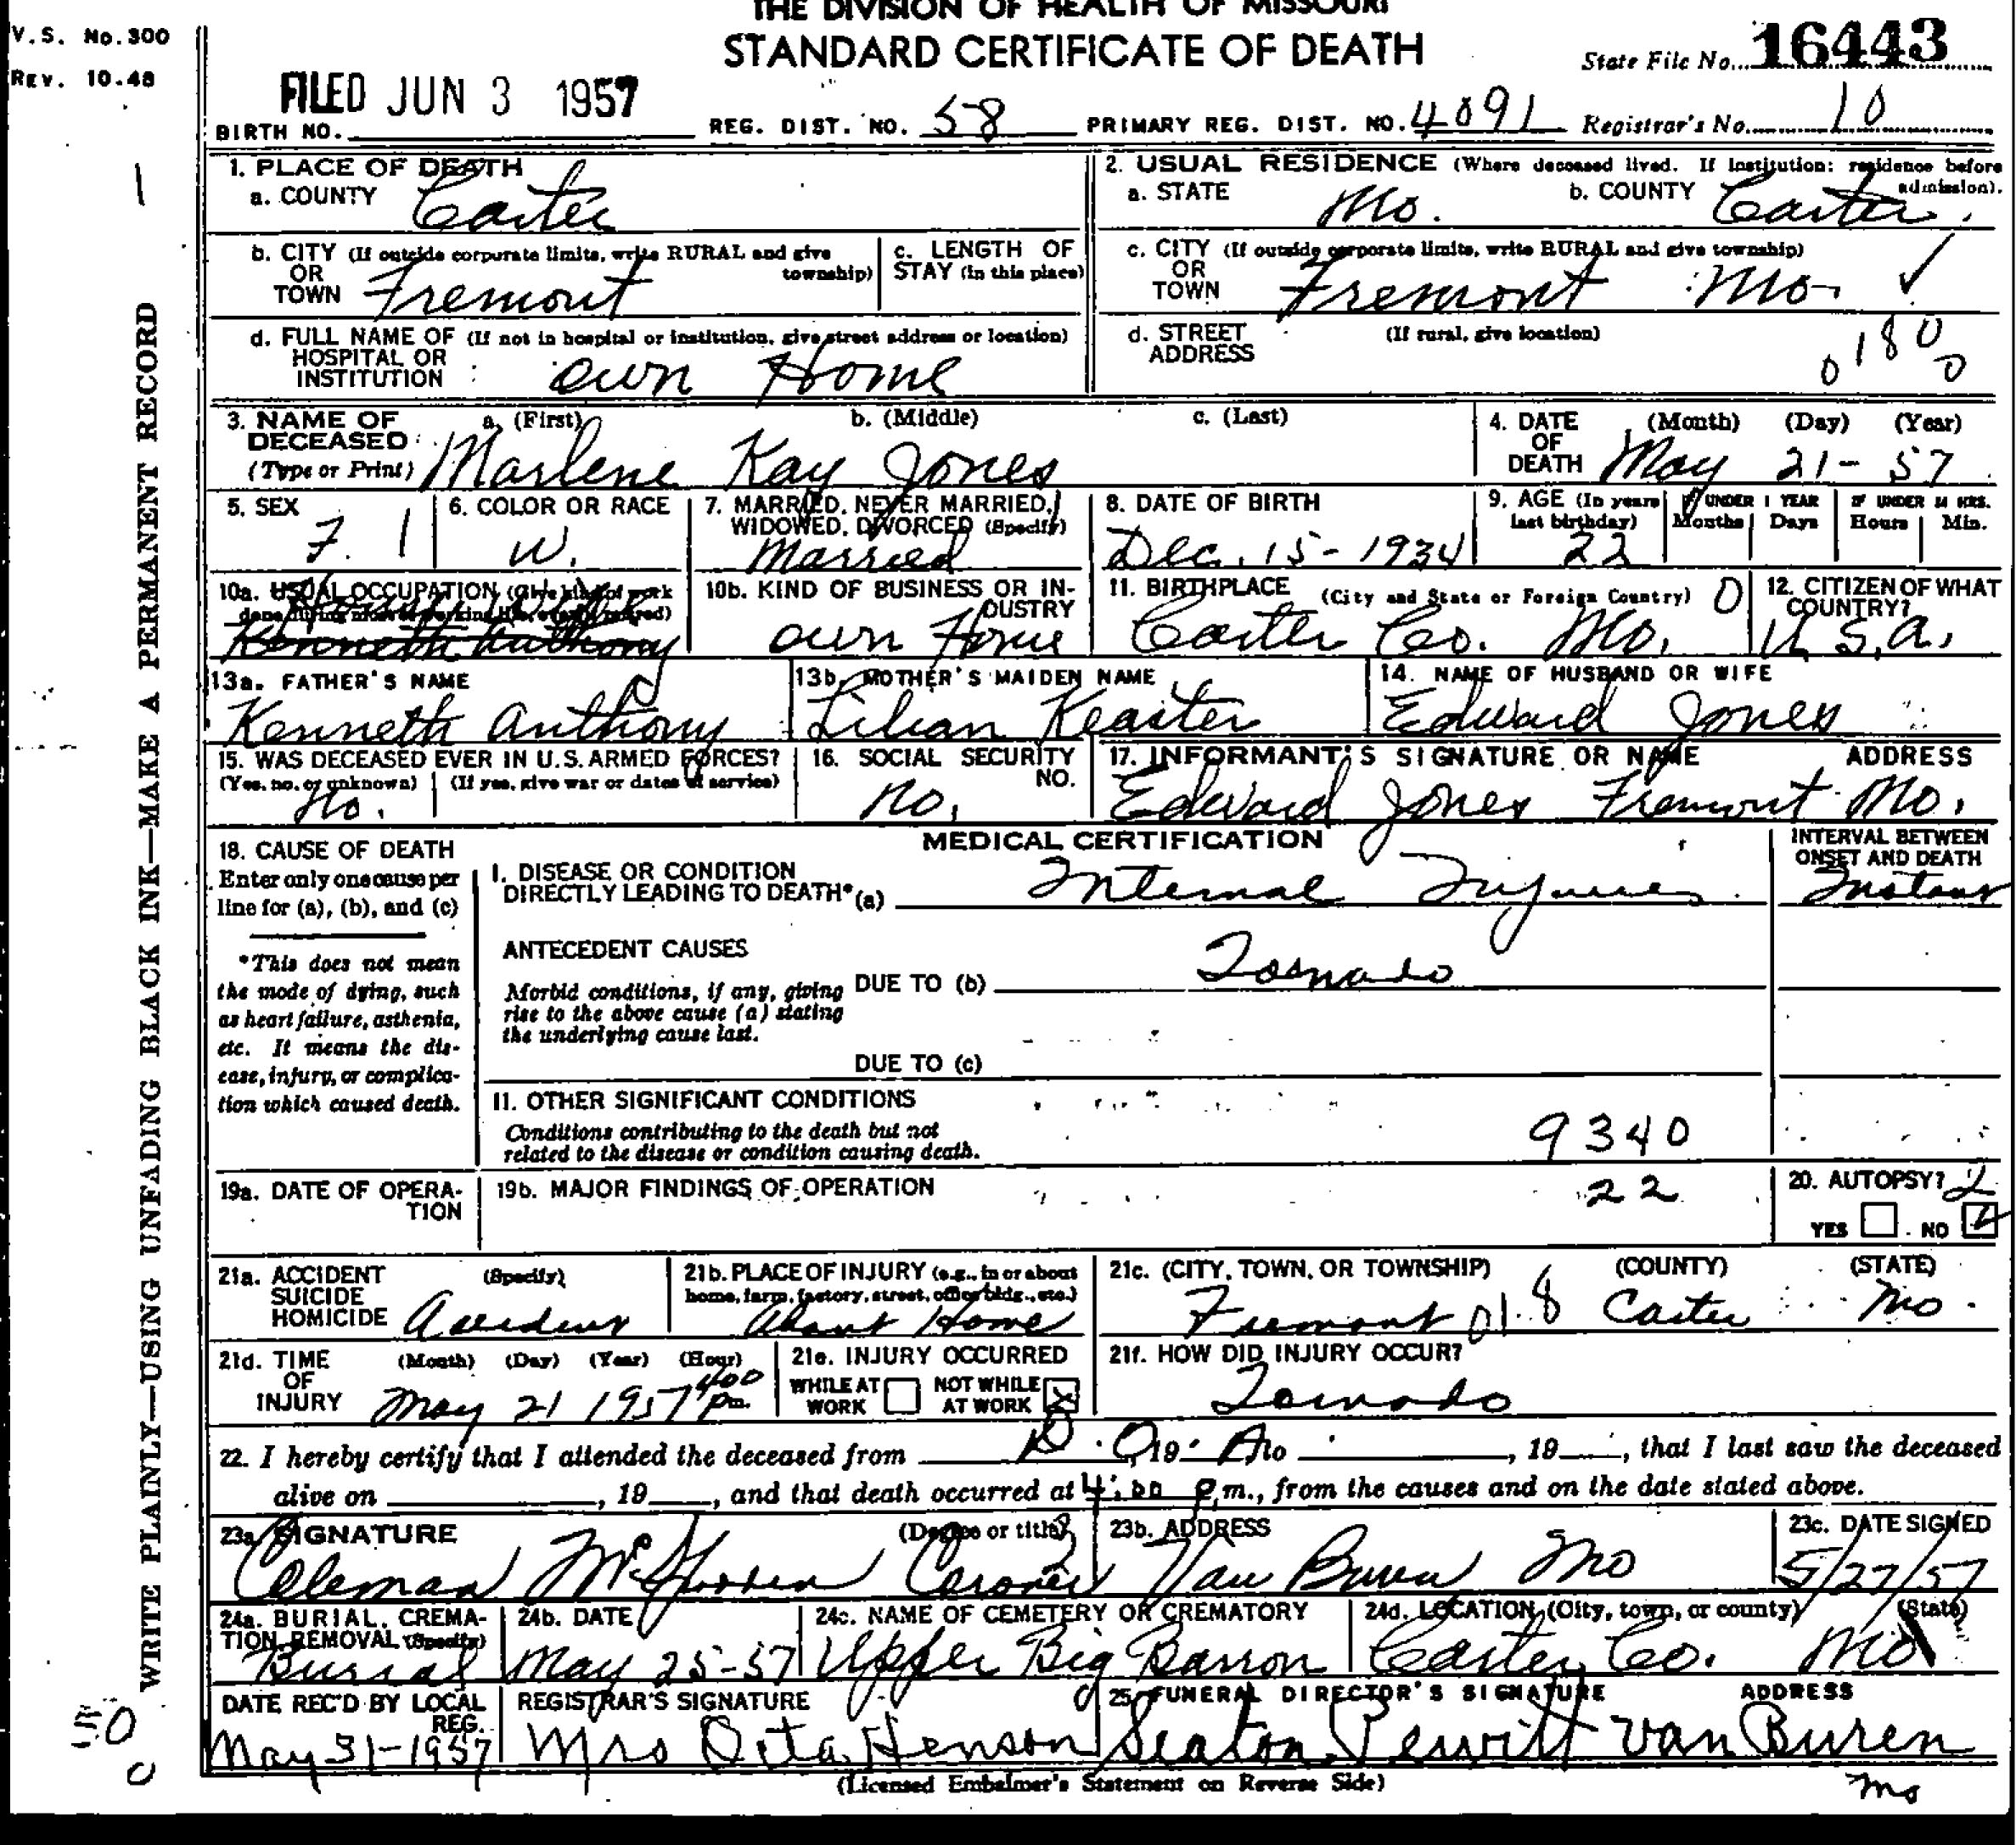 THE DIVISION OF HEALTH OF MISSOURI
V.S. No. 300
REV. 10.48
STANDARD CERTIFICATE OF DEATH
State File No. 16443
FILED JUN 3 1957
BIRTH NO. REG. DIST. NO. 58 PRIMARY REG. DIST. NO. 4091 Registrar's No. 10
WRITE PLAINLY—USING UNFADING BLACK INK—MAKE A PERMANENT RECORD
1. PLACE OF DEATH
a. COUNTY Carter
2. USUAL RESIDENCE (Where deceased lived. If institution: residence before admission).
a. STATE Mo. b. COUNTY Carter.
b. CITY (If outside corporate limits, write RURAL and give township) OR TOWN Fremont
c. LENGTH OF STAY (in this place)
c. CITY (If outside corporate limits, write RURAL and give township) OR TOWN Fremont Mo. ✓
d. FULL NAME OF (If not in hospital or institution, give street address or location) HOSPITAL OR INSTITUTION own Home
d. STREET ADDRESS (If rural, give location)
0 18 0 0
3. NAME OF DECEASED (Type or Print) a. (First) b. (Middle) c. (Last)
Marlene Kay Jones
4. DATE OF DEATH (Month) (Day) (Year)
May 21-57
5. SEX F. 1
6. COLOR OR RACE W.
7. MARRIED, NEVER MARRIED, WIDOWED, DIVORCED (Specify) Married
8. DATE OF BIRTH Dec. 15-1934
9. AGE (In years last birthday) 22
IF UNDER 1 YEAR Months Days
IF UNDER 24 HRS. Hours Min.
10a. USUAL OCCUPATION (Give kind of work done during most of working life, even if retired)
Kenneth Anthony
10b. KIND OF BUSINESS OR INDUSTRY own Home
11. BIRTHPLACE (City and State or Foreign Country) 0
Carter Co. Mo.
12. CITIZEN OF WHAT COUNTRY? U.S.A.
13a. FATHER'S NAME Kenneth Anthony
13b. MOTHER'S MAIDEN NAME Lilian Keaster
14. NAME OF HUSBAND OR WIFE Edward Jones
15. WAS DECEASED EVER IN U.S. ARMED FORCES?
(Yes, no, or unknown) (If yes, give war or dates of service)
No.
16. SOCIAL SECURITY NO. no.
17. INFORMANT'S SIGNATURE OR NAME ADDRESS
Edward Jones Fremont Mo.
18. CAUSE OF DEATH
Enter only one cause per line for (a), (b), and (c)
*This does not mean the mode of dying, such as heart failure, asthenia, etc. It means the disease, injury, or complication which caused death.
MEDICAL CERTIFICATION
INTERVAL BETWEEN ONSET AND DEATH
I. DISEASE OR CONDITION DIRECTLY LEADING TO DEATH* (a) Internal Injuries Instant
ANTECEDENT CAUSES
Morbid conditions, if any, giving rise to the above cause (a) stating the underlying cause last.
DUE TO (b) Tornado
DUE TO (c)
II. OTHER SIGNIFICANT CONDITIONS
Conditions contributing to the death but not related to the disease or condition causing death.
9340
19a. DATE OF OPERATION
19b. MAJOR FINDINGS OF OPERATION 22
20. AUTOPSY? 2
YES NO
21a. ACCIDENT SUICIDE HOMICIDE (Specify) Accident
21b. PLACE OF INJURY (e.g., in or about home, farm, factory, street, office bldg., etc.) About Home
21c. (CITY, TOWN, OR TOWNSHIP) (COUNTY) (STATE)
Fremont 018 Carter Mo.
21d. TIME OF INJURY (Month) (Day) (Year) (Hour)
May 21 1957 4:00 pm.
21e. INJURY OCCURRED WHILE AT WORK NOT WHILE AT WORK X
21f. HOW DID INJURY OCCUR? Tornado
22. I hereby certify that I attended the deceased from D. O. 19 A. to , 19 , that I last saw the deceased
alive on , 19 , and that death occurred at 4:00 P.m., from the causes and on the date stated above.
23a. SIGNATURE (Degree or title)
Coleman Coroner
23b. ADDRESS Van Buren Mo
23c. DATE SIGNED 5/27/57
24a. BURIAL, CREMATION, REMOVAL (Specify) Burial
24b. DATE May 25-57
24c. NAME OF CEMETERY OR CREMATORY Upper Big Barron
24d. LOCATION (City, town, or county) (State)
Carter Co. Mo
DATE REC'D BY LOCAL REG. May 31-1957
REGISTRAR'S SIGNATURE Mrs Oita Henson
25. FUNERAL DIRECTOR'S SIGNATURE ADDRESS
Seaton Pewitt Van Buren
Mo
(Licensed Embalmer's Statement on Reverse Side)
50
0